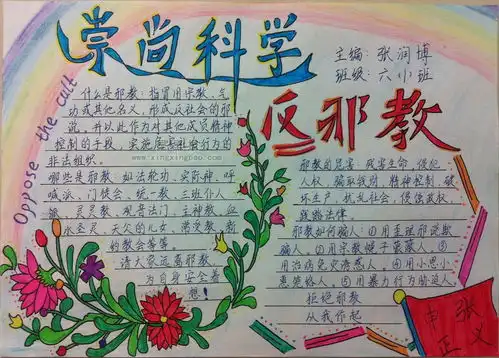 崇尚科学
主编：张润博
班级：六（1）班
反邪教
Oppose the cult
什么是邪教：指冒用宗教、气
功或其他名义，形成反社会的邪
说，并以此作为对其他成员精神
控制的手段，实施危害社会行为的
非法组织。
哪些是邪教：如法轮功、实际神、呼
喊派、门徒会、统一教、三班仆人
派、灵灵教、观音法门、主神教、血
水圣灵、天父的儿女、
的教会等等。
请大家远离邪教
为自身安全着
想！
www.xingxingbao.com
邪教的危害：残害生命、侵犯
人权、骗取钱财、精神控制、破
坏生产、扰乱社会、侵害政权
践踏法律。
邪教如何骗人：①用歪理邪说欺
骗人。②用宗教幌子蒙蔽人。③
用治病免灾诱惑人。④用小恩小
惠笼络人。⑤用暴力行为胁迫人
拒绝邪教
从我作起
张
正义